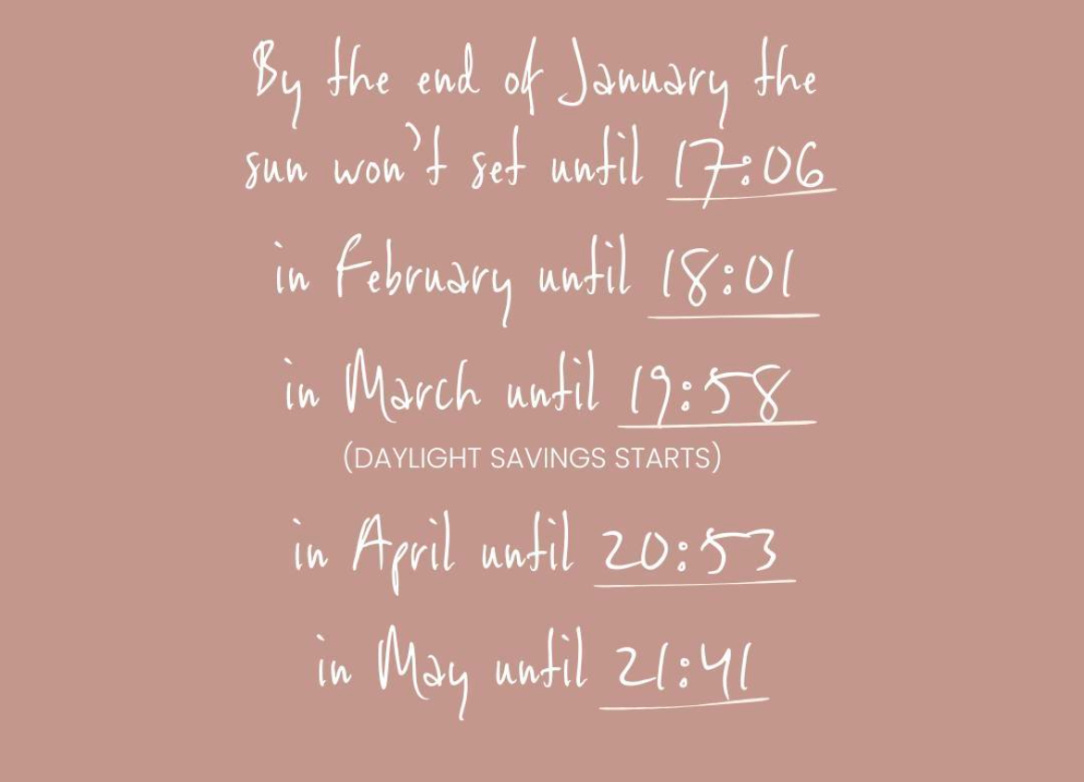 By the end of January the
sun won't set until 17:06
in February until 18:01
in March until 19:58
(DAYLIGHT SAVINGS STARTS)
in April until 20:53
in May until 21:41